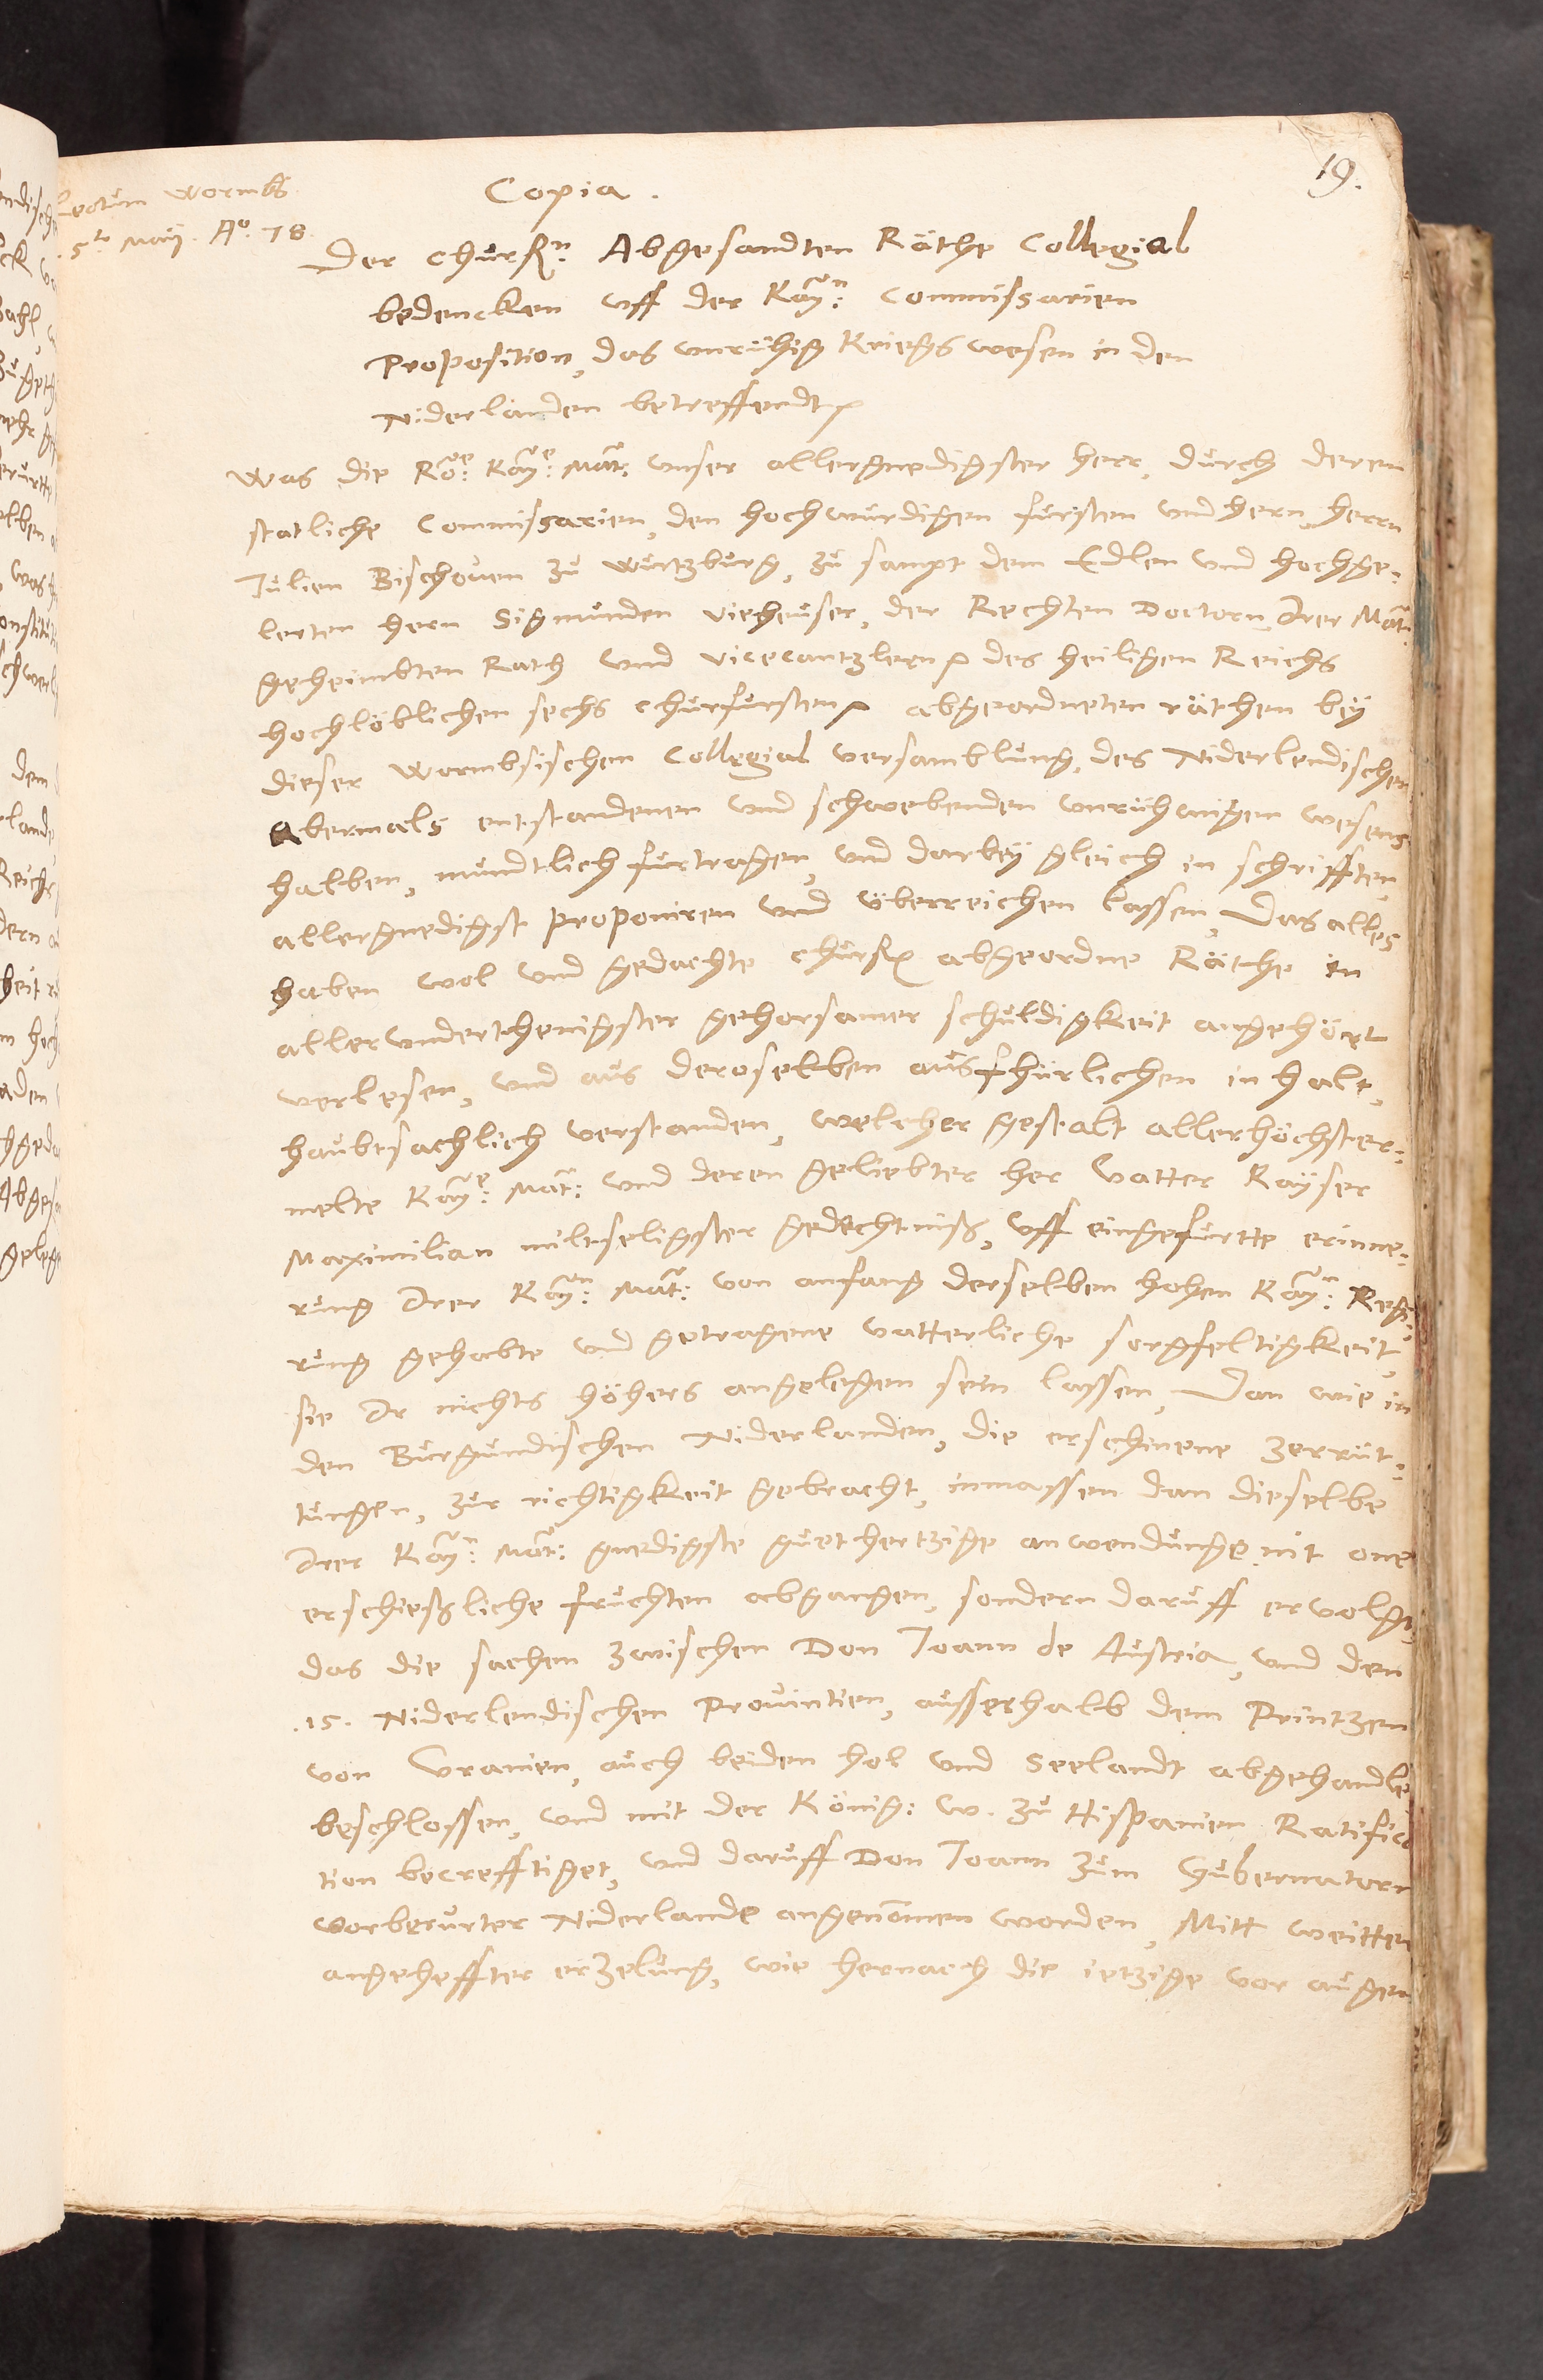 19.
Lectum Wormbs
5to Maÿ. Ao. 78.
Copia.
Der Churfn: Abgesandten Räthe Collegial
bedencken vff der Kayn: Commissarien
Proposition, das vnrühig Kriegs wesen in den
Niderlanden betreffendt
Was die Röe: Kaye: Mat: vnser allergnedigster herr, durch deren
statliche Commissarien, den hochwürdigen fürsten vnd hern, herrn
Julien Bischouen zu Würtzburg, zu sampt dem Edlen vnd hochge-
lerten hern Sigmunden Vieheuser, der Rechten Doctorn, Irer Mat:
geheimbten Rath vnd Vicecantzlern des heiligen Reichs
hochlöblichen sechs Churfursten abgeordneten räthen beÿ
dieser Wormbsischen Collegial versamblung, des Niderlendischen
Abermals entstandenen vnd schwebenden vnrühanigen wesens
halben, mundtlich furtragen, vnd darbeÿ gleich in schrifften
allergnedigst proponiren vnd überreichen lassen, Das alles
haben wol vnd gedachte Churf abgeordne Räthe in
allervnderthenigster gehorsamer schuldigkeit angehört
verlesen, vnd aus deroselben ausfhürlichen inhalt,
haubtsachlich verstanden, welcher gestalt allerhöchster-
melte Kaye: Mat: vnd deren geliebter her Vatter Kaÿser
Maximilian miltseligster gedechtniß, vff eingefürtte erinne-
rung Irer Kayn: Mat: von anfang derselben hohen Kayn: Regi-
rung gehabte vnd getragene vatterliche sorgfeltigkeit,
sie Ir nichts höhers angelegen sein lassen, Dan wie in
den Burgundischen Niderlanden, die erschinene zerrüt-
tungen, zur richtigkeit gebracht, inmassen dan dieselbe
Irer Kayn: Mat: gnedigste guethertzige anwendunge nit one
erschießliche fruchten abgangen, sondern daruff ervolgt,
das die sachen zwischen Don Joann de Austria, vnd den
.15. Niderlendischen Prouintien, ausserhalb dem Printzen
von Vranien, auch beiden Hol vnd Seelandt abgehandlet
beschlossen, vnd mit der König: W. zu Hispanien Ratifica
tion becrefftiget, vnd daruff Don Joann zum Gubernatorn
vorberurter Niderlande angenommen worden, Mitt weitter
angeheffter erzelung, wie hernach die ietzige vor augen